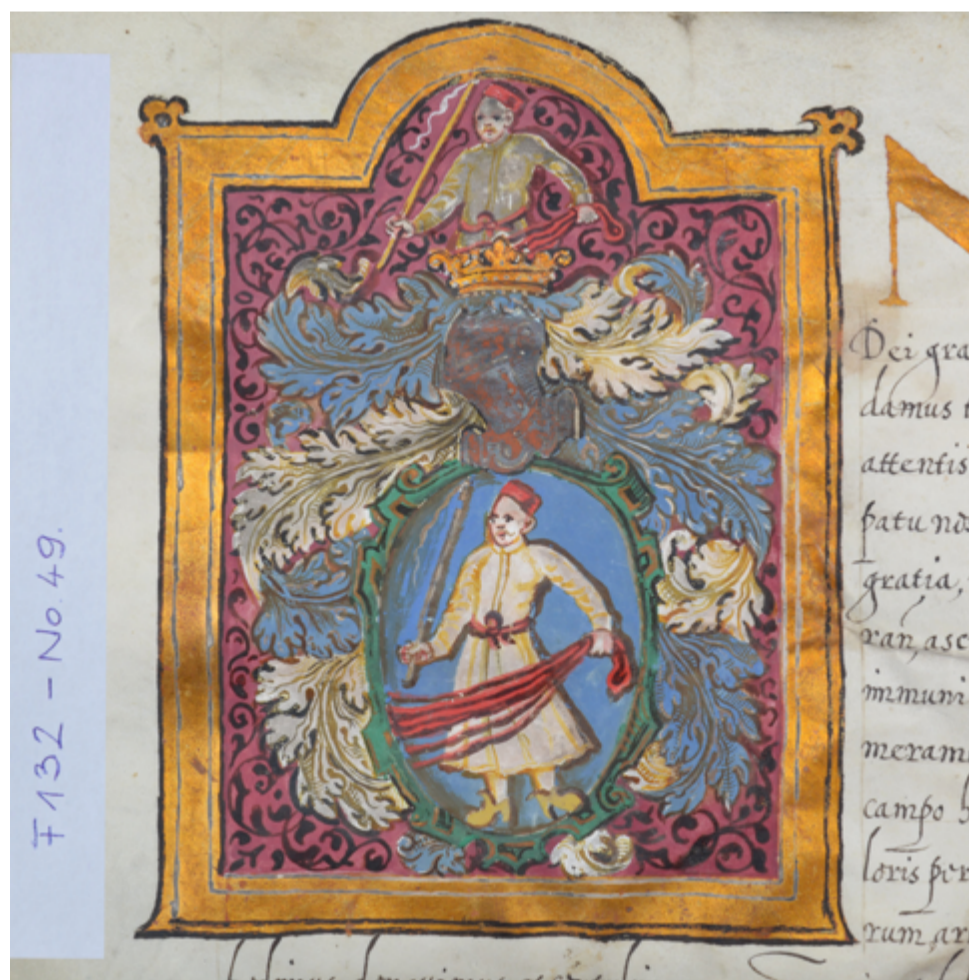 F 132 - No. 49.
N
Dei gra
damus
attentis
patu
gratia,
ran, asc
immuni
meram
campo
loris per
rum, ar